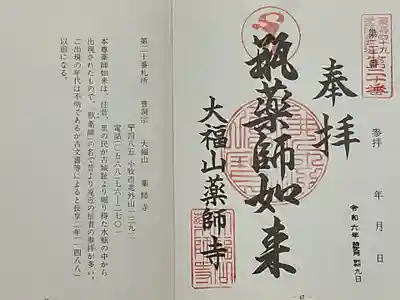 第二十番札所　曹洞宗　大福山　薬師寺
〒四八五　小牧市北外山一三九二
電話(〇五六八)七六―二七〇一
本尊薬師如来は、往昔、里の民が古城趾より掘り得た水瓶の中から
出現されたもので、「瓶薬師」の名で昔より遠近の信者の参拝が多い。
出現の年代は不明であるが古文書等によると長享二年(一四八八)
以前になる。
第二十番
奉拝
参拝　年　月　日
令和六年　九日
瓶薬師如来
大福山薬師寺